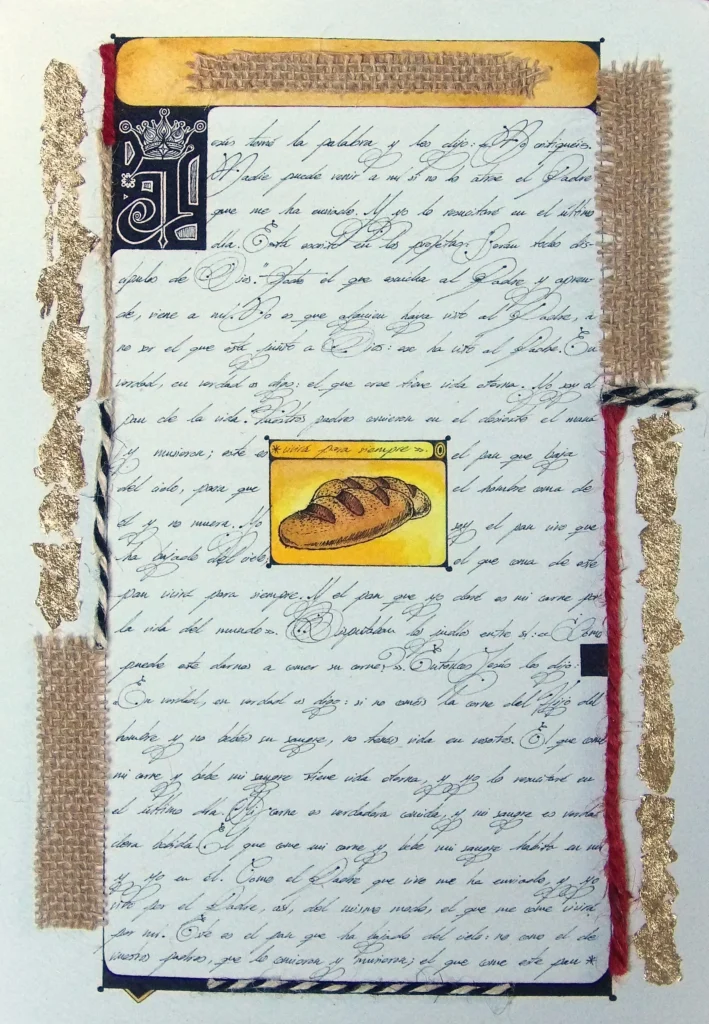 Jesús tomó la palabra y les dijo: «No critiquéis.
Nadie puede venir a mí si no lo atrae el Padre
que me ha enviado. Y yo lo resucitaré en el último
día. Está escrito en los profetas: "Serán todos dis-
cípulos de Dios." Todo el que escucha al Padre y apren-
de, viene a mí. No es que alguien haya visto al Padre, a
no ser el que está junto a Dios: ese ha visto al Padre. En
verdad, en verdad os digo: el que cree tiene vida eterna. Yo soy el
pan de la vida. Vuestros padres comieron en el desierto el maná
y murieron; este es el pan que baja
del cielo, para que el hombre coma de
él y no muera. Yo soy el pan vivo que
ha bajado del cielo; el que coma de este
pan vivirá para siempre. Y el pan que yo daré es mi carne por
la vida del mundo». Disputaban los judíos entre sí: «¿Cómo
puede este darnos a comer su carne?». Entonces Jesús les dijo:
En verdad, en verdad os digo: si no coméis la carne del Hijo del
hombre y no bebéis su sangre, no tenéis vida en vosotros. El que come
mi carne y bebe mi sangre tiene vida eterna, y yo lo resucitaré en
el último día. Mi carne es verdadera comida, y mi sangre es verda-
dera bebida. El que come mi carne y bebe mi sangre habita en mí
y yo en él. Como el Padre que vive me ha enviado, y yo
vivo por el Padre, así, del mismo modo, el que me come vivirá
por mí. Este es el pan que ha bajado del cielo: no como el de
vuestros padres, que lo comieron y murieron; el que come este pan *
*vivirá para siempre».